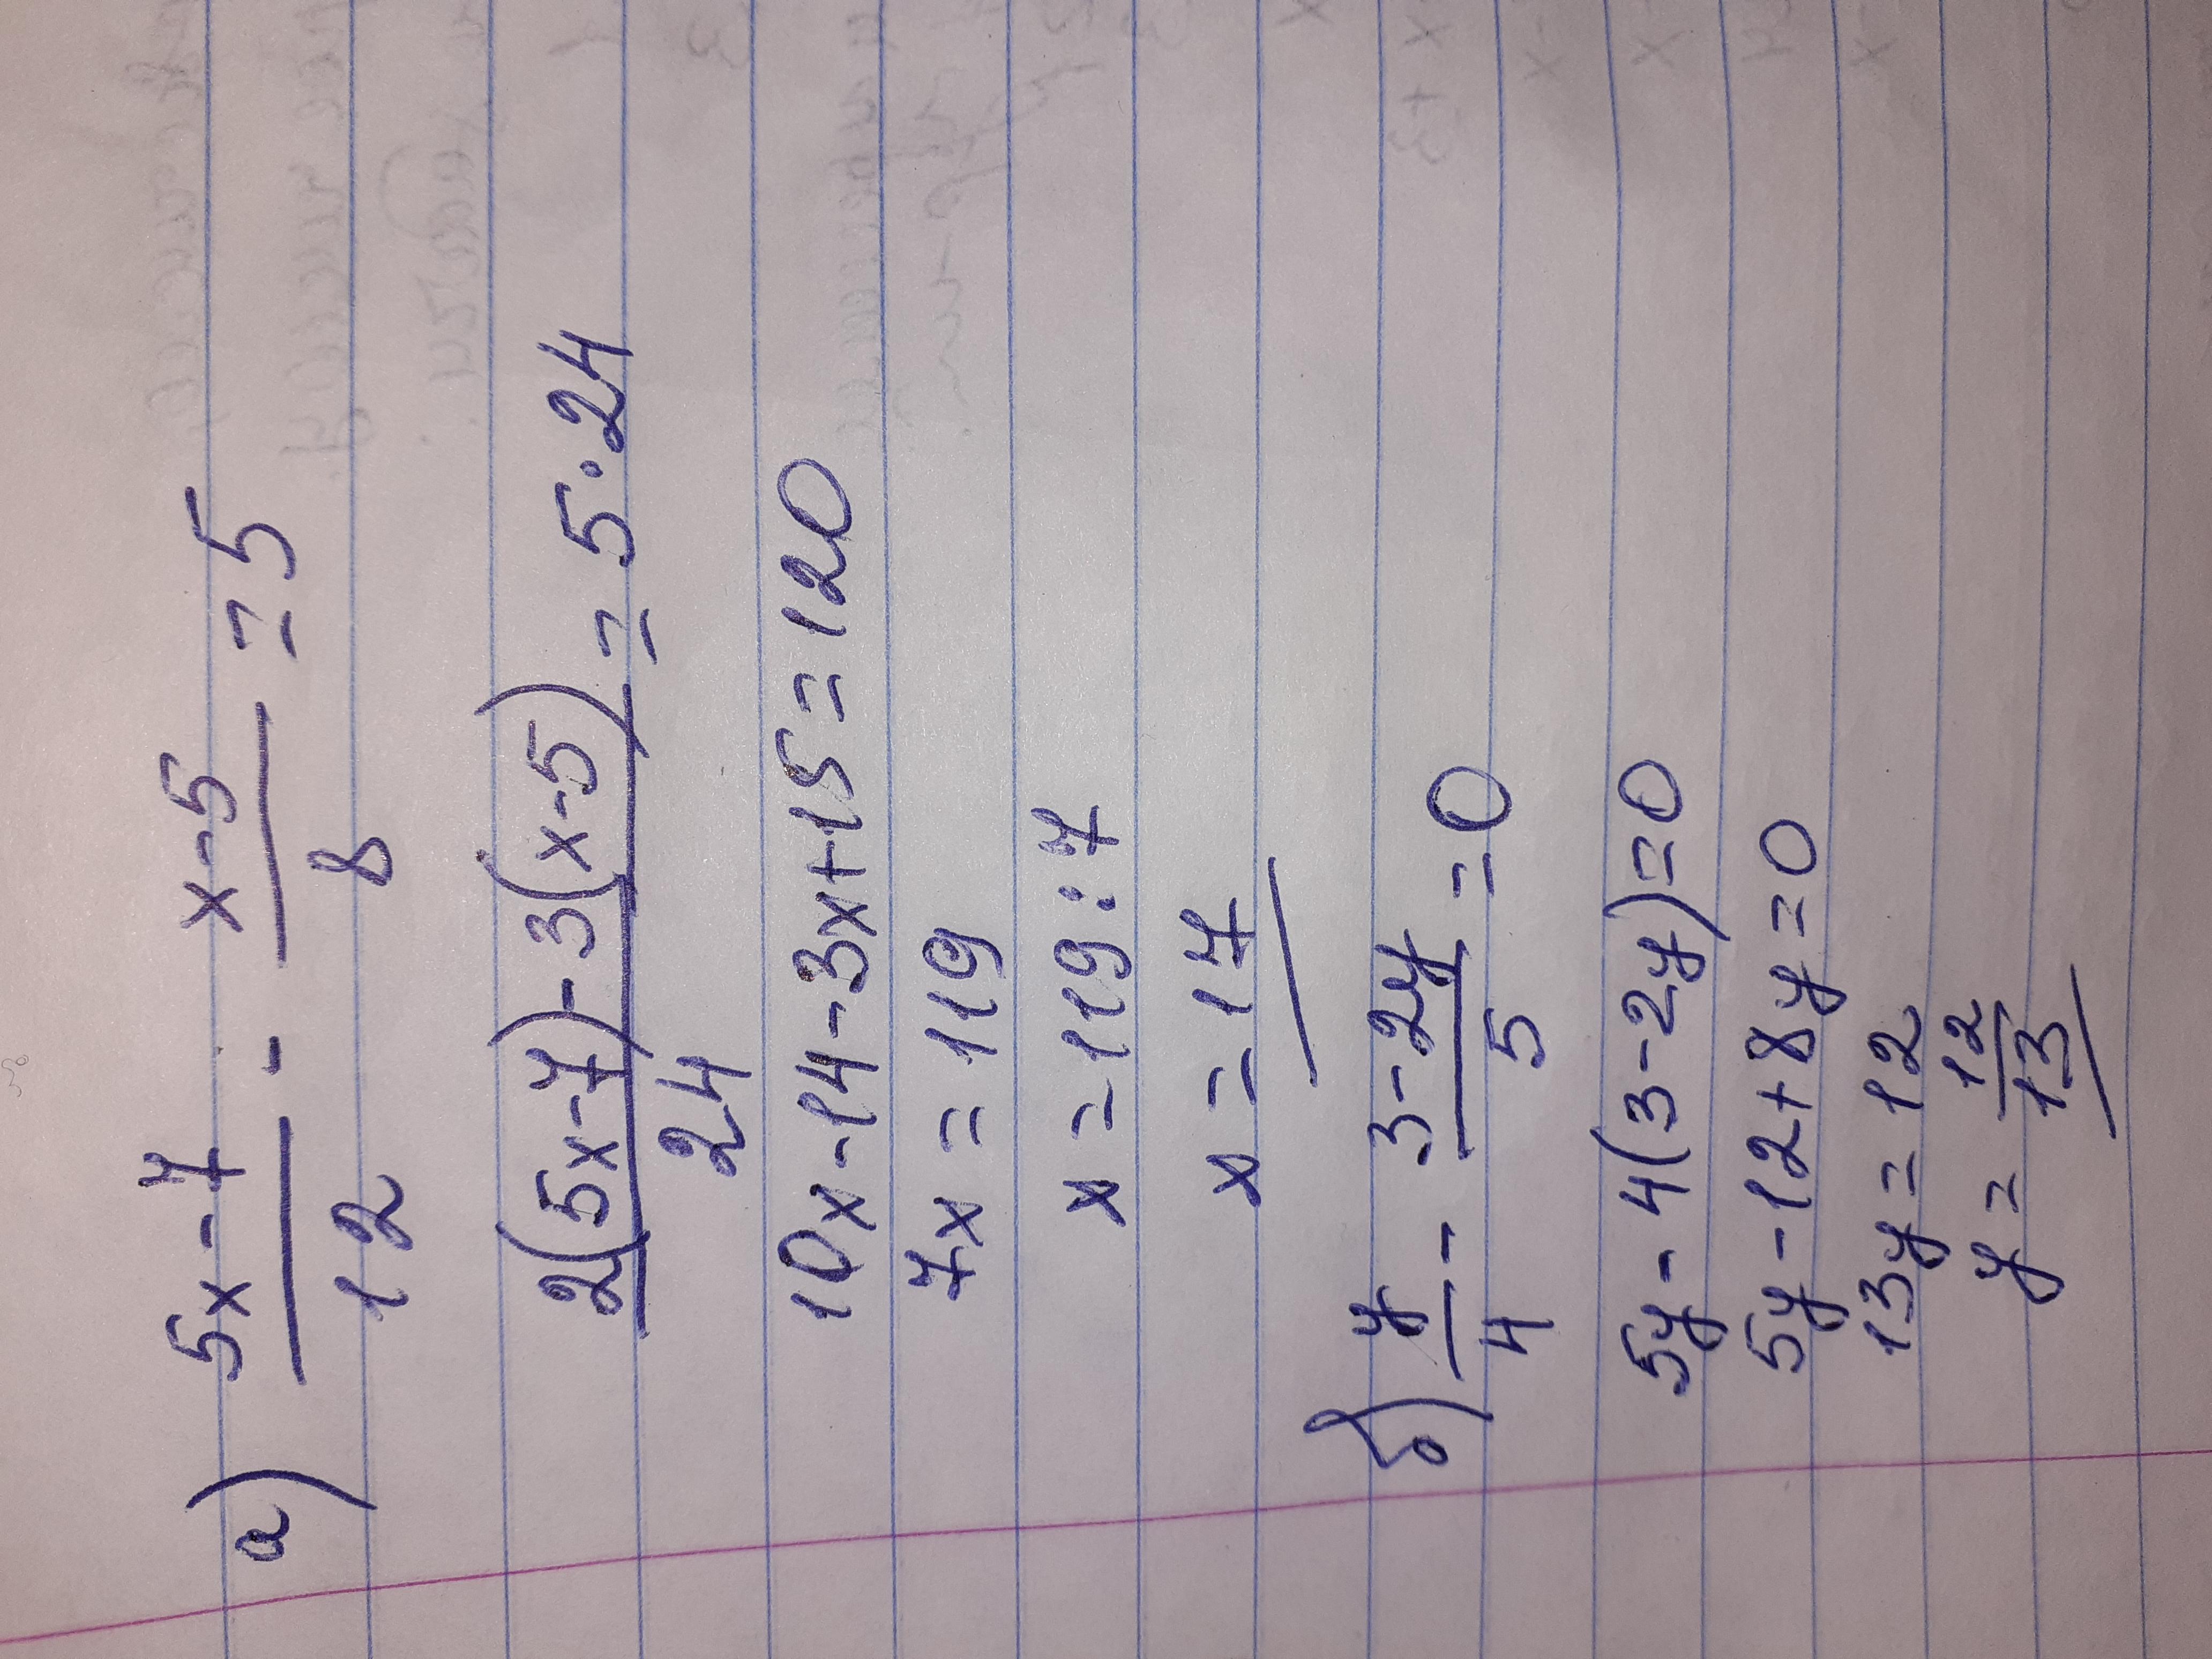 а) (5x-7)/12 - (x-5)/8 = 5
(2(5x-7)-3(x-5))/24 = 5·24
10x-14-3x+15=120
7x = 119
x = 119:7
x = 17
б) y/4 - (3-2y)/5 = 0
5y - 4(3-2y)=0
5y-12+8y=0
13y = 12
y = 12/13